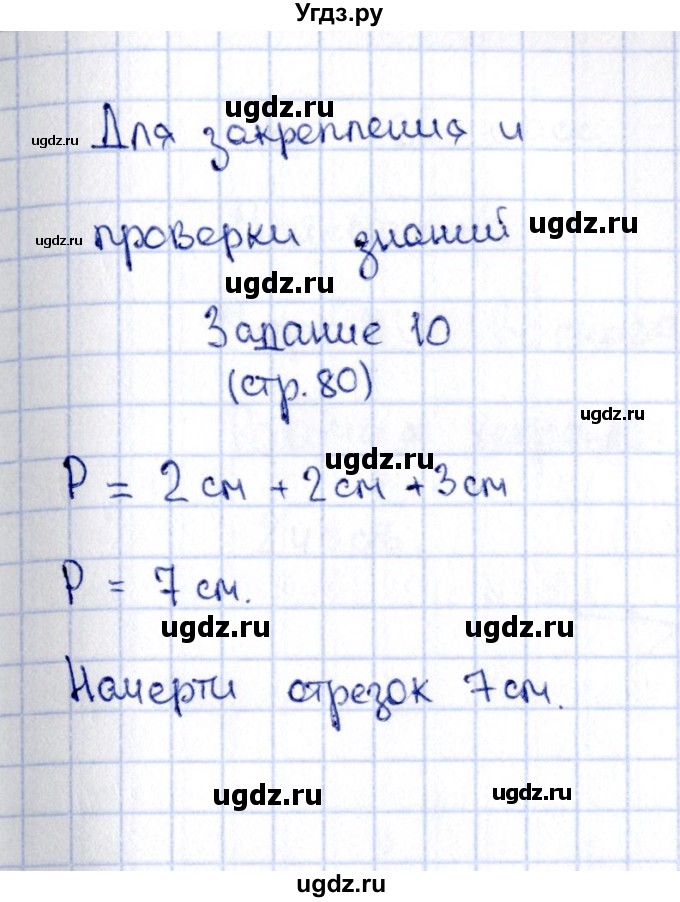 Угдз.ру
ugdz.ru
ugdz.ru Для закрепления и
ugdz.ru проверки знаний ugdz.ru
ugdz.ru
Задание 10
(стр. 80)
ugdz.ru
ugdz.ru
P = 2 см + 2 см + 3 см
P = 7 см.
ugdz.ru ugdz.ru
Начерти отрезок 7 см.
ugdz.ru ugdz.ru
ugdz.ru